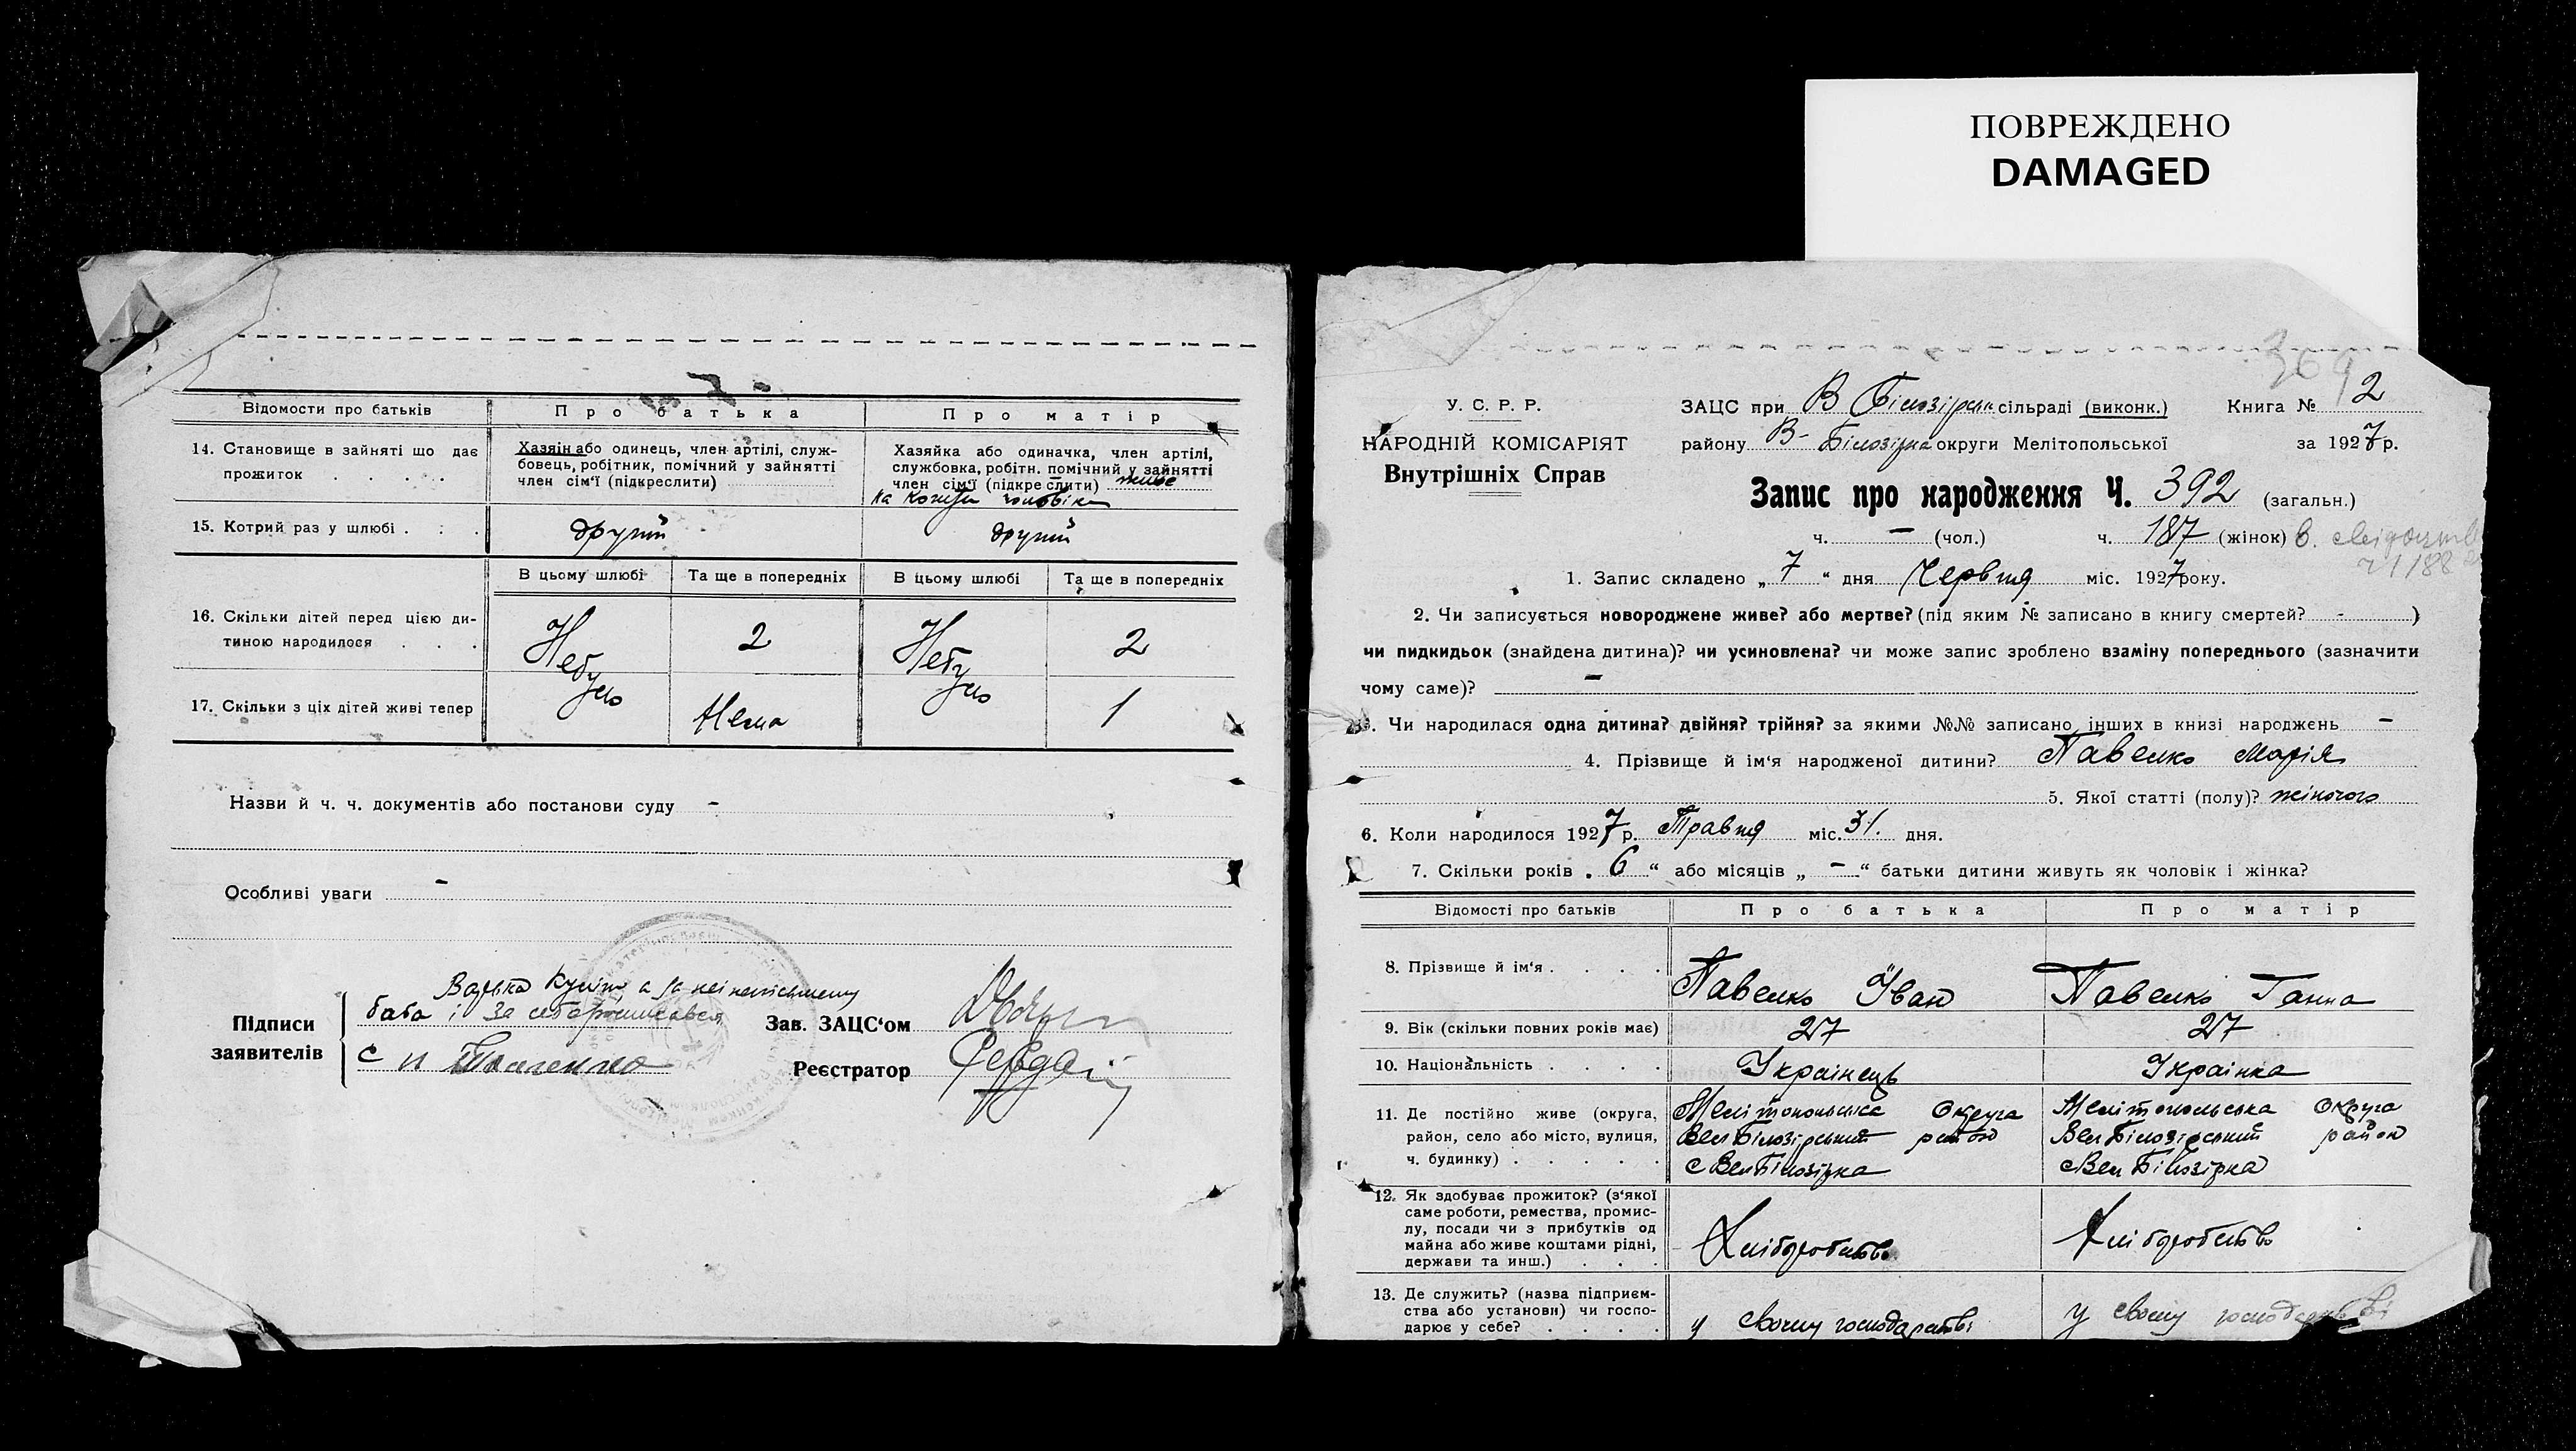 ПОВРЕЖДЕНО
DAMAGED
Відомости про батьків
Про батька
Про матір
14. Становище в зайняті що дає
прожиток . . . .
Хазяін або одинець, член артілі, служ-
бовець, робітник, помічний у зайнятті
член сім‘ї (підкреслити)
Хазяйка або одиначка, член артілі,
службовка, робітн. помічний у зайнятті
член сім‘ї (підкреслити) живе
на кошти чоловіка
15. Котрий раз у шлюбі . . .
другий
другий
В цьому шлюбі
Та ще в попередніх
В цьому шлюбі
Та ще в попередніх
16. Скільки дітей перед цією ди-
тиною народилося . . .
Небуло
2
Небуло
2
17. Скільки з ціх дітей живі тепер
Нема
1
Назви й ч. ч. документів або постанови суду -
Особливі уваги -
Підписи
заявителів
баба і За себе росписався
Зав. ЗАЦС‘ом
Реєстратор
369
У. С. Р. Р.
НАРОДНІЙ КОМІСАРІЯТ
Внутрішніх Справ
ЗАЦС при В Білозірськ сільраді (виконк.) Книга № 2
району В-Білозірка округи Мелітопольської за 1927 р.
Запис про народження Ч. 392 (загальн.)
ч. - (чол.) ч. 187 (жінок)
1. Запис складено „ 7 “ дня Червня міс. 1927 року.
2. Чи записується новороджене живе? або мертве? (під яким № записано в книгу смертей? - )
чи пидкидьок (знайдена дитина)? чи усиновлена? чи може запис зроблено взаміну попереднього (зазначити
чому саме)? -
3. Чи народилася одна дитина? двійня? трійня? за якими №№ записано інших в книзі народжень -
4. Прізвище й ім‘я народженої дитини? Павенко Марія
5. Якої статті (полу)? жіночого
6. Коли народилося 1927 р. Травня міс. 31. дня.
7. Скільки років „ 6 “ або місяців „ - “ батьки дитини живуть як чоловік і жінка?
Відомості про батьків
Про батька
Про матір
8. Прізвище й ім‘я . . . .
Павенко Іван
Павенко Ганна
9. Вік (скільки повних років має)
27
27
10. Національність . . . .
Українець
Українка
11. Де постійно живе (округа,
район, село або місто, вулиця,
ч. будинку) . . . . .
Мелітопольська Округа
Вел Білозірський район
с Вел Білозірка
Мелітопольська Округа
Вел Білозірський район
с Вел Білозірка
12. Як здобуває прожиток? (з‘якої
саме роботи, ремества, промис-
лу, посади чи з прибутків од
майна або живе коштами рідні,
держави та инш.) . . .
Хліборобство
Хліборобство
13. Де служить? (назва підприєм-
ства або установи) чи госпо-
дарює у себе? . . . .
у свому господарстві
у свому господарстві